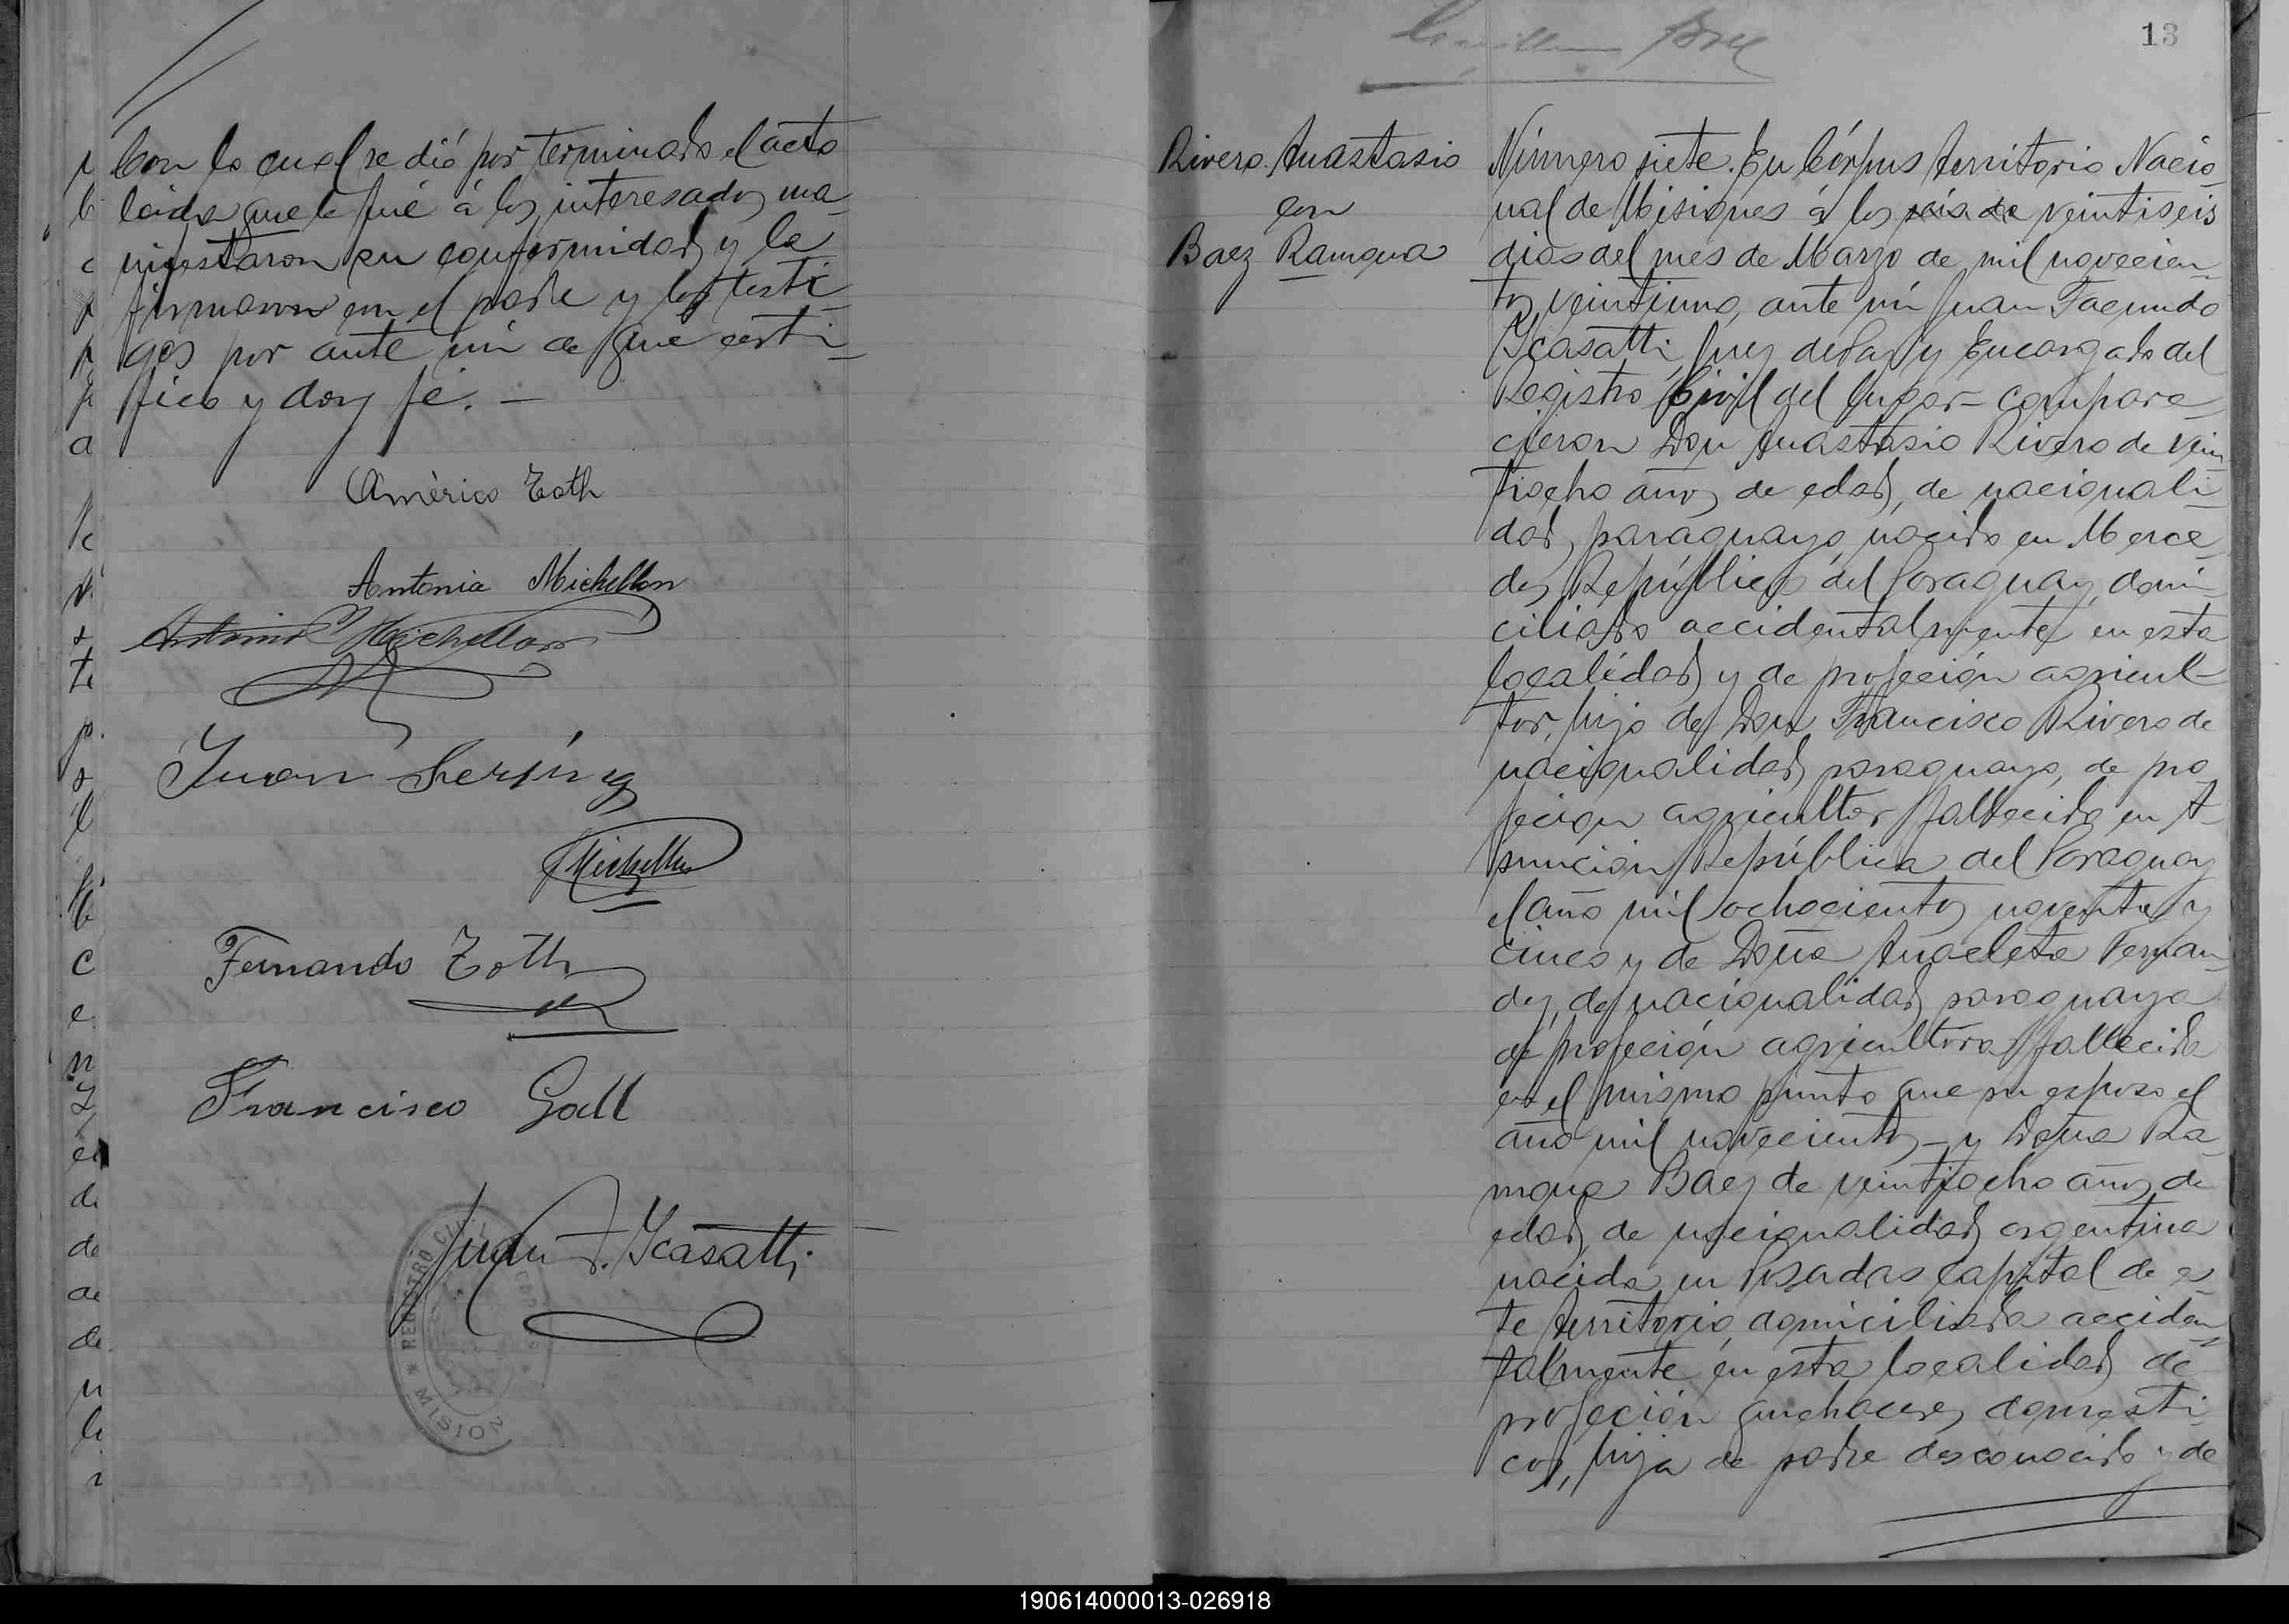 Con lo cual se dió por terminado el acto
leida que le fué á los interesados ma-
nifestaron su conformidad y la
firmaron con el padre y los testi-
gos por ante mi de que certi-
fico y doy fé. —
Américo Toth
Antonia Michellon
Antonio Michellon
Juan
Michellon
Fernando Toth
Francisco Gall
Juan F. Ycasatti
REGISTRO CIVIL
MISIONES
13
Rivero Anastasio
con
Baez Ramona
Número siete. En Córpus Territorio Nacio-
nal de Misiones á los seis de veintiseis
dias del mes de Marzo de mil novecien-
tos veintiuno, ante mi Juan Facundo
Ycasatti, Juez de Paz y Encargado del
Registro Civil del lugar - compare-
cieron Don Anastasio Rivero de vein-
tiocho años de edad, de nacionali-
dad paraguayo, nacido en Merce-
des República del Paraguay, domi-
ciliado accidentalmente en esta
localidad y de profeción agricul-
tor, hijo de Don Francisco Rivero de
nacionalidad paraguayo, de pro
feción agricultor fallecido en A-
sunción República del Paraguay
el año mil ochocientos noventa y
cinco y de Doña Anacleta Fernan-
dez, de nacionalidad paraguaya
de profeción agricultora fallecida
en el mismo punto que su esposo el
año mil novecientos - y Doña Ra-
mona Baez de veintiocho años de
edad, de nacionalidad argentina
nacida en Posadas Capital de es
te Territorio, domiciliada acciden-
talmente en esta localidad de
profeción quehaceres domesti-
cos, hija de padre desconocido y de
190614000013-026918